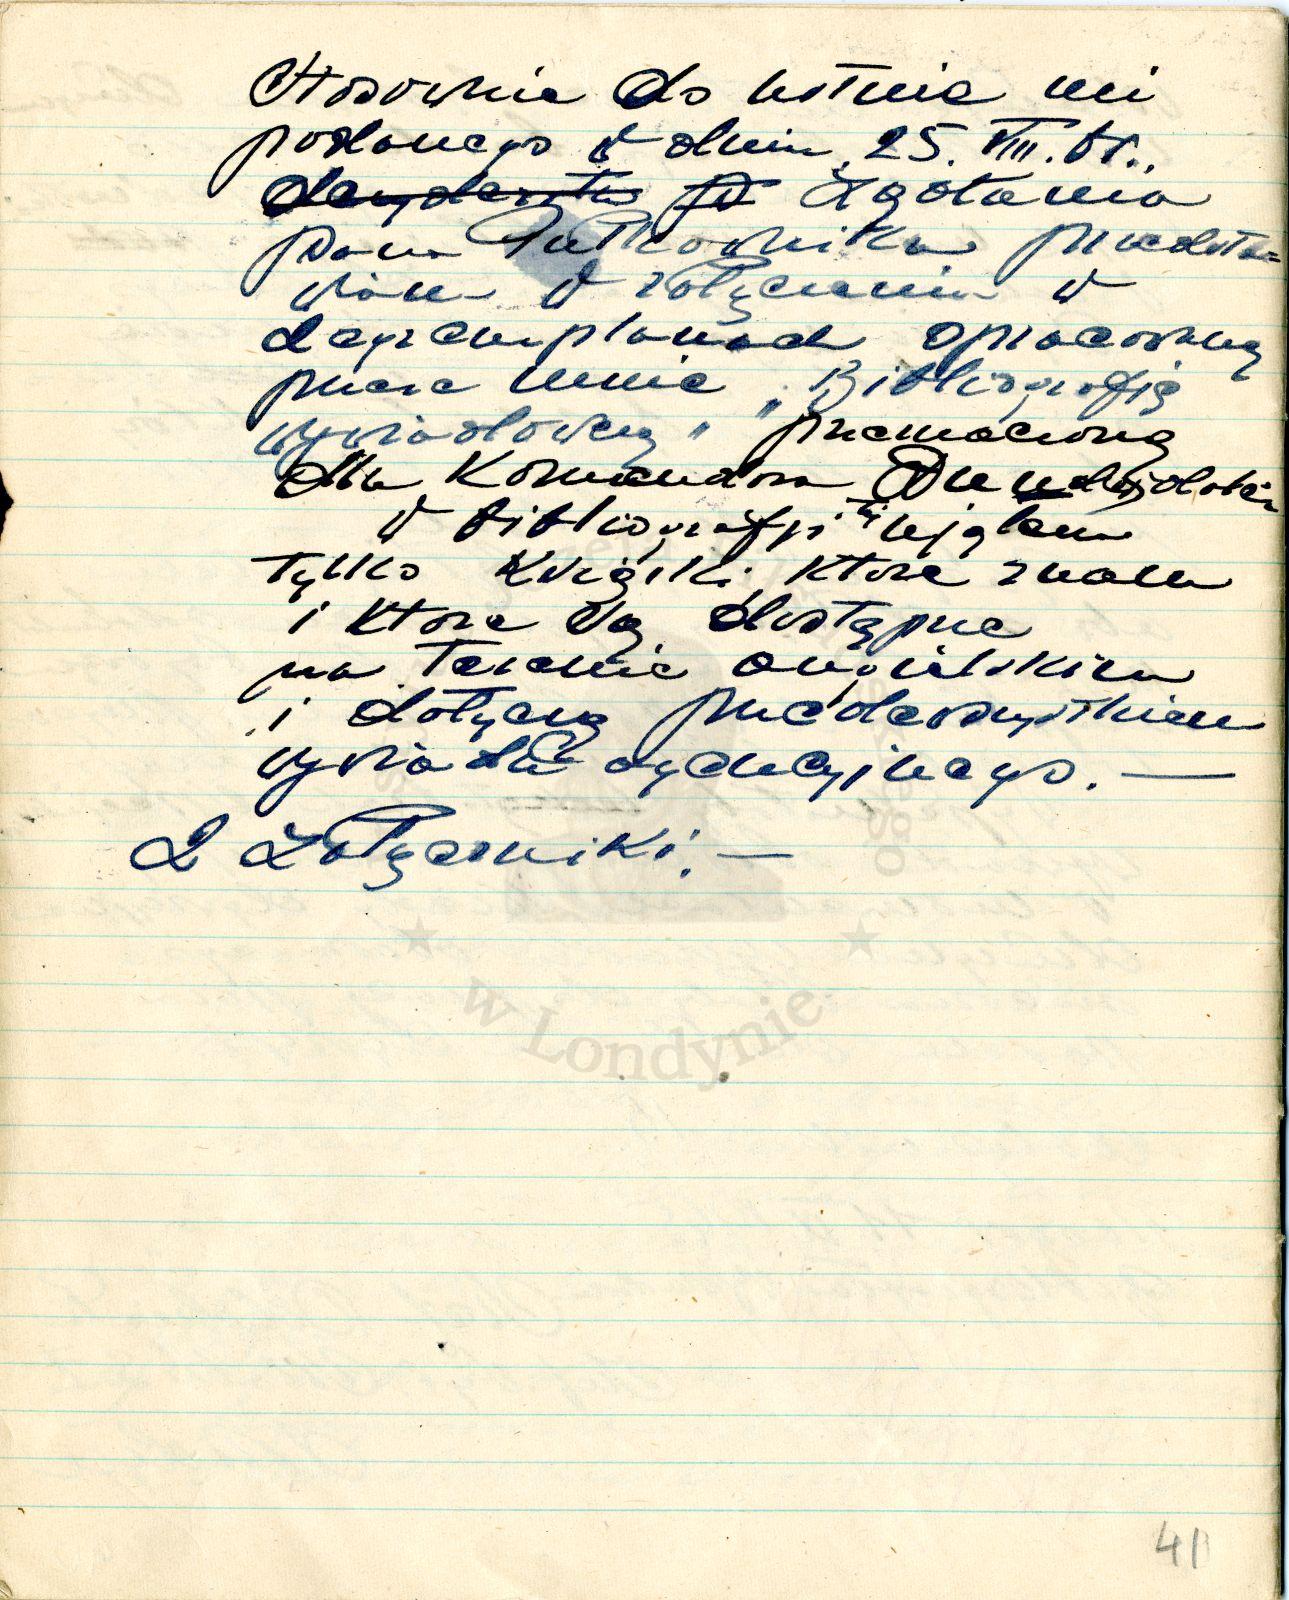 Stosownie do ustnie mi
podanego w dniu 25. VIII. br.
dezyderatu żądania
pana Pułkownika przedsta=
wiam w załączeniu w
2 egzemplarzach opracowaną
przeze mnie "Bibliografię
wywiadowczą" przeznaczoną
dla Komandora
W bibliografji tej ująłem
tylko książki, które znam
i które są dostępne
na terenie angielskim
i dotyczą przedewszystkiem
wywiadu ofenzyjnego. —
2 załączniki. —
w Londynie
41